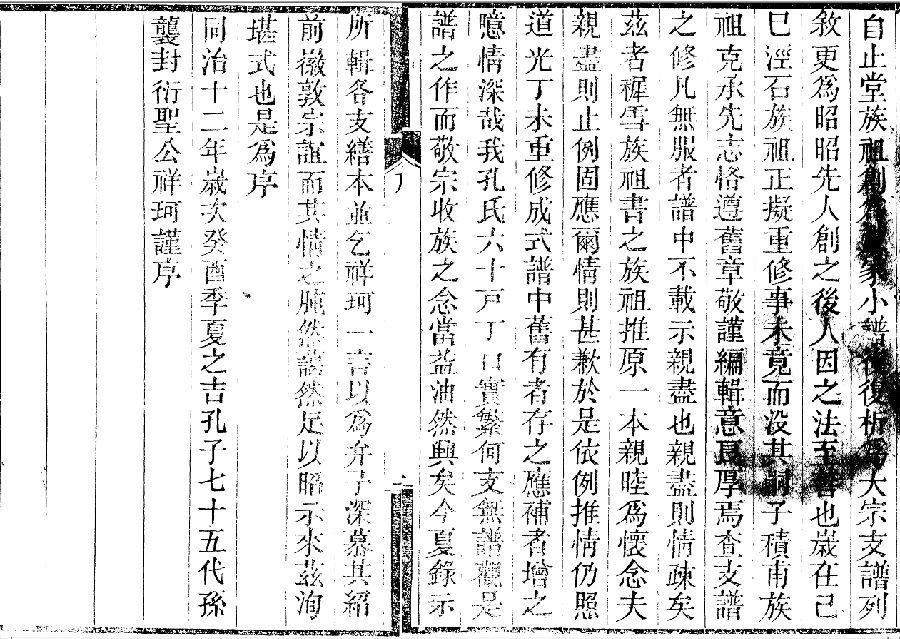 自止堂族祖創爲家小譜後復析爲大宗支譜列
敘更爲昭昭先人創之後人因之法至善也歲在己
巳涇石族祖正擬重修事未竟而没其嗣子積南族
祖克承先志恪遵舊章敬謹編輯意良厚焉查支譜
之修凡無服者譜中不載示親盡也親盡則情疎矣
茲者穉雪族祖書之族祖推原一本親睦爲懷念夫
親盡則止例固應爾情則甚歉於是依例推情仍照
道光丁未重修成式譜中舊有者存之應補者增之
噫情深哉我孔氏六十戸丁口實繁何支無譜觀是
譜之作而敬宗收族之念當益油然興矣今夏錄示
所輯各支繕本並乞祥珂一言以爲弁予深慕其紹
前徽敦宗誼而其情之肫然藹然足以昭示來茲洵
堪式也是爲序
同治十二年歲次癸酉季夏之吉孔子七十五代孫
襲封衍聖公祥珂謹序